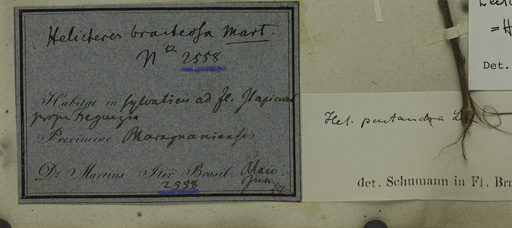 Helicteres bracteosa Mart.
N° 2558
Habitat in sylvaticis ad fl. Itapicurú
prope
Provinciae Maragnaniensis
Dr Martius Iter Brasil. Majo
2558 Jun.
Hel. pentandra L.
det. Schumann in Fl. Bra
= H
Det.